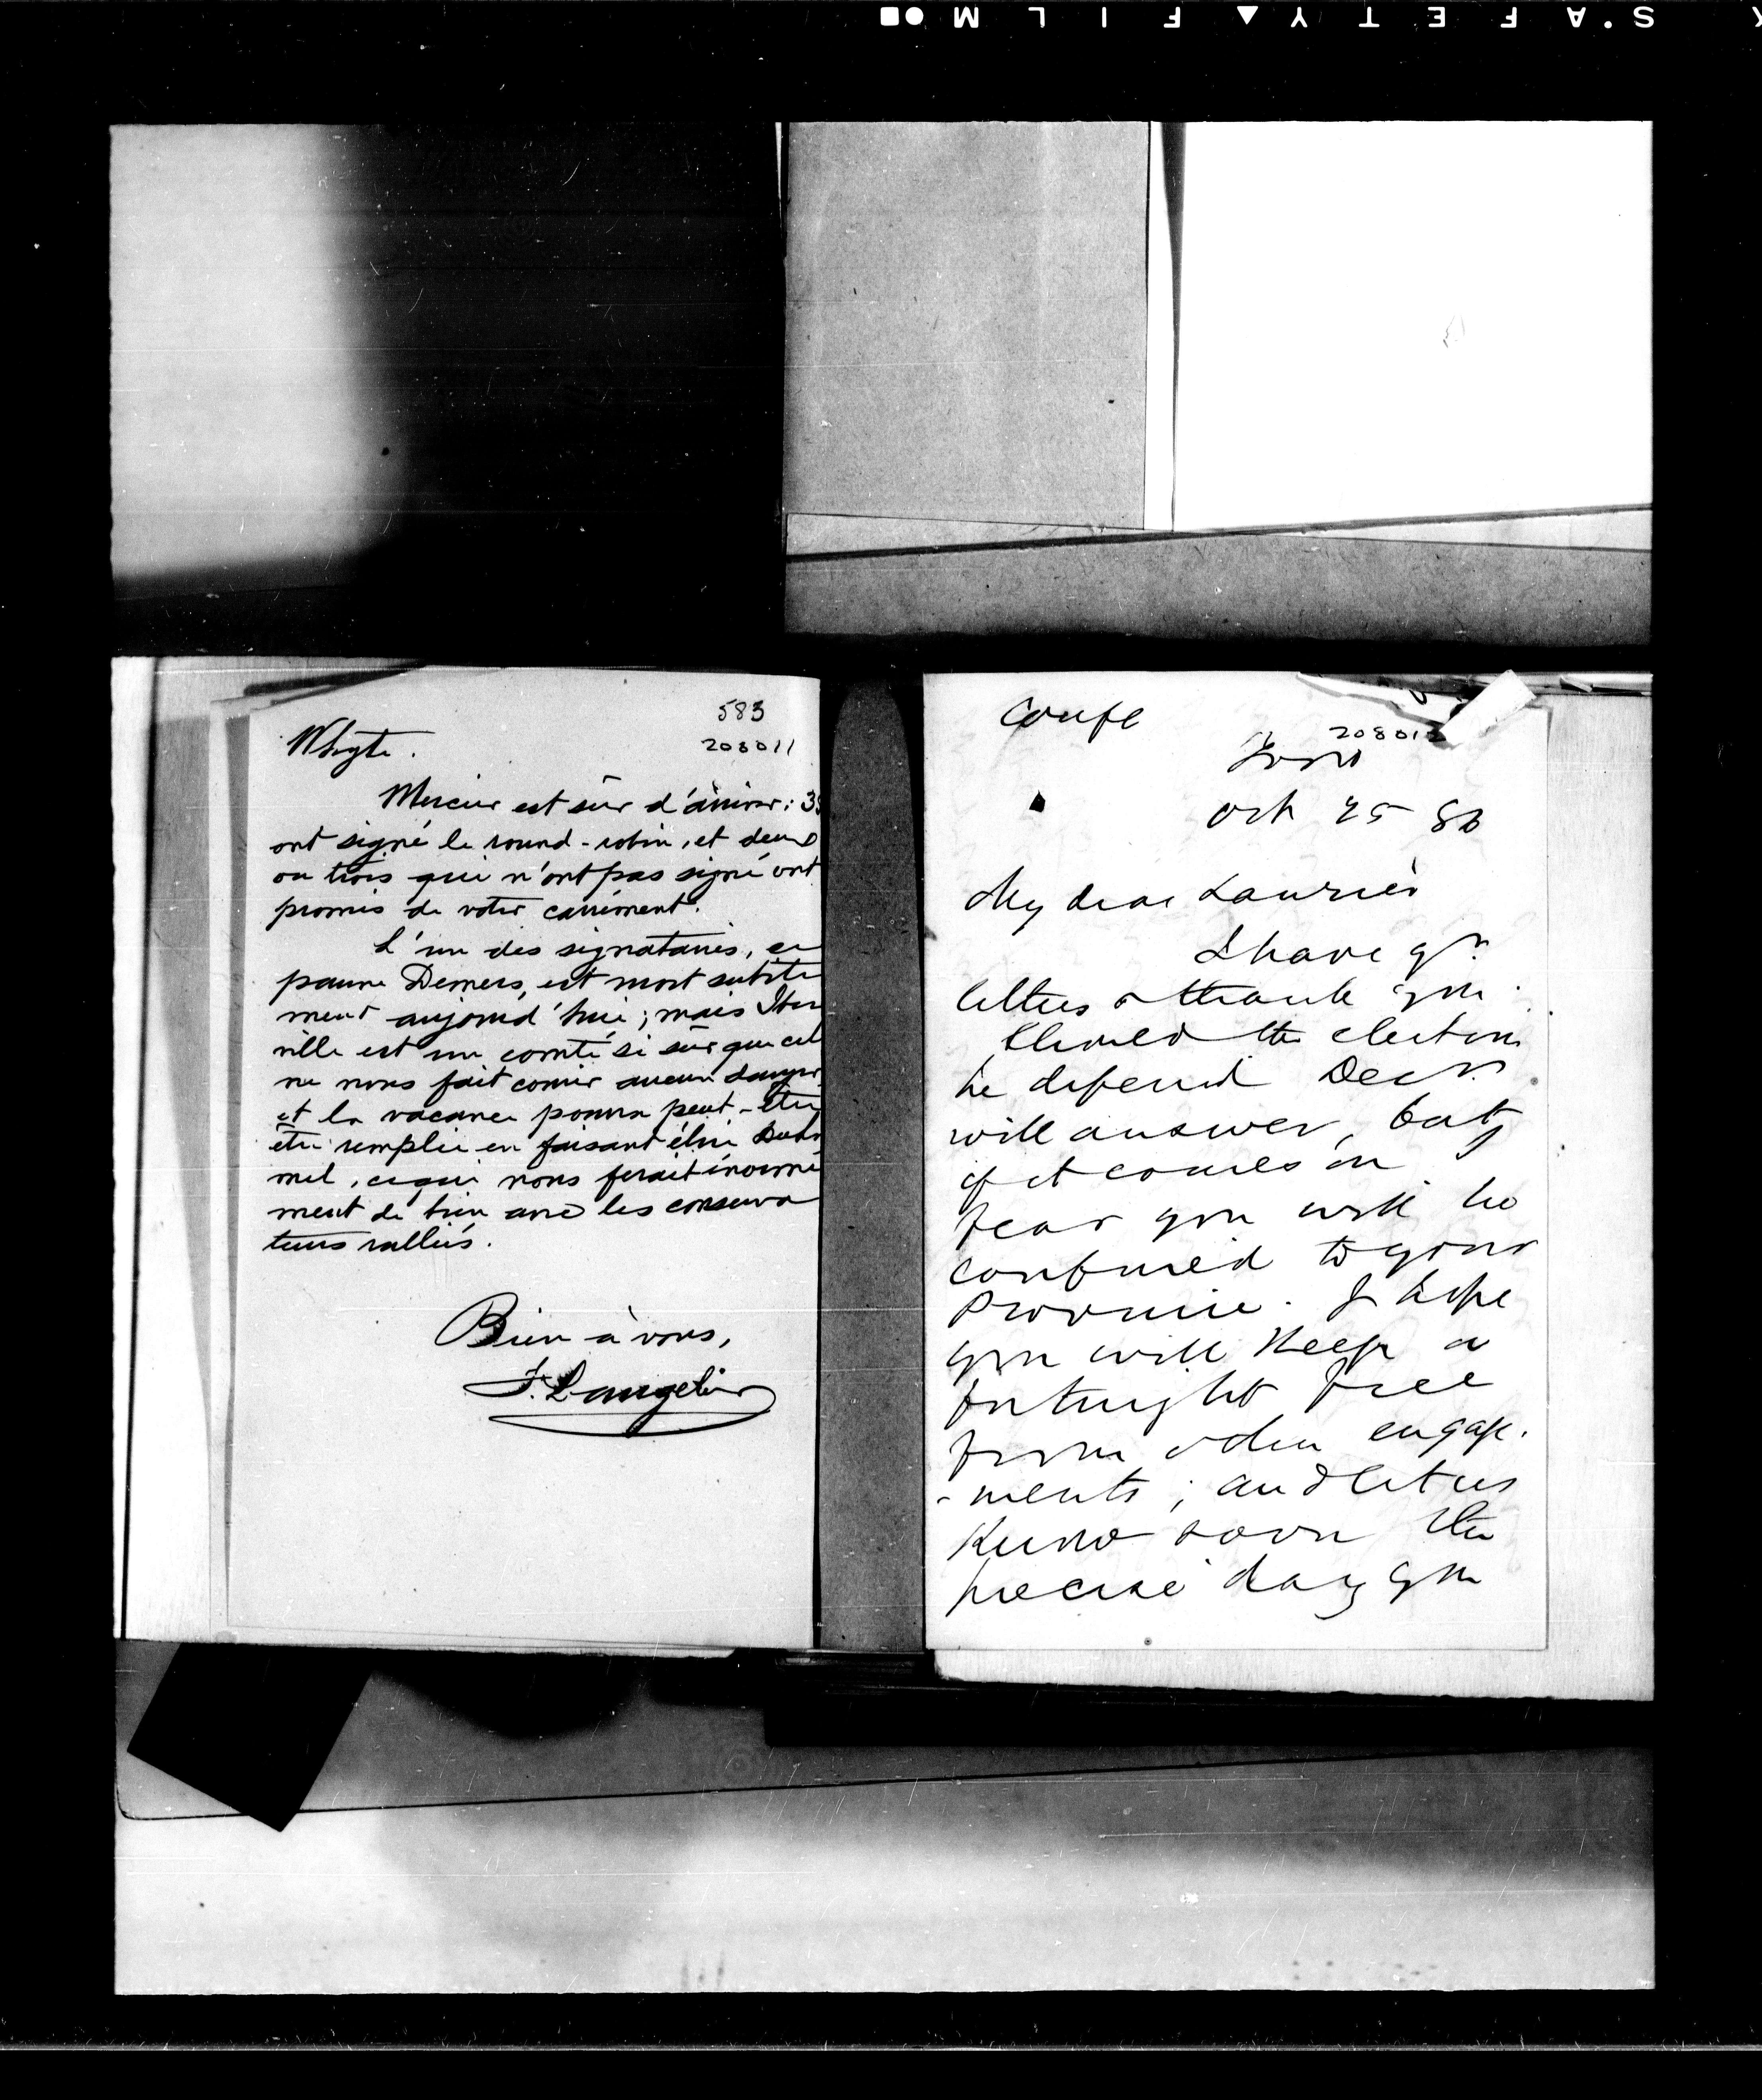 SAFETY FILM
583
208011
Whyte.
Mercier est sûr d'arriver: 3
ont signé le round-robin, et deux
ou trois qui n'ont pas signé ont
promis de voter carrément.
L'un des signataires, ce
pauvre Demers, est mort subite
ment aujourd'hui; mais Iber
ville est un comté si sûr que cel
ne nous fait courir aucun danger,
et la vacance pourra peut-être
être remplie en faisant élire Duha
mel, ce qui nous ferait énormé
ment de bien avec les conserva
teurs ralliés.
Bien à vous,
F. Langelier
Confl
208012
Toro
Oct 25 86
My dear Laurier
I have yr
letters & thank you.
Should the election
be deferred Decr
will answer, but
if it comes on
fear you will be
confined to your
Province. I hope
you will keep a
fortnight free
from other engage-
-ments; and let us
know soon the
precise day you